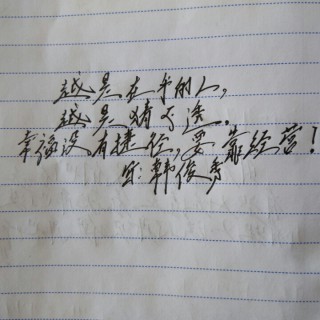 越是在乎的人,
越是猜不透。
幸福没有捷径,要靠经营!
韩俊